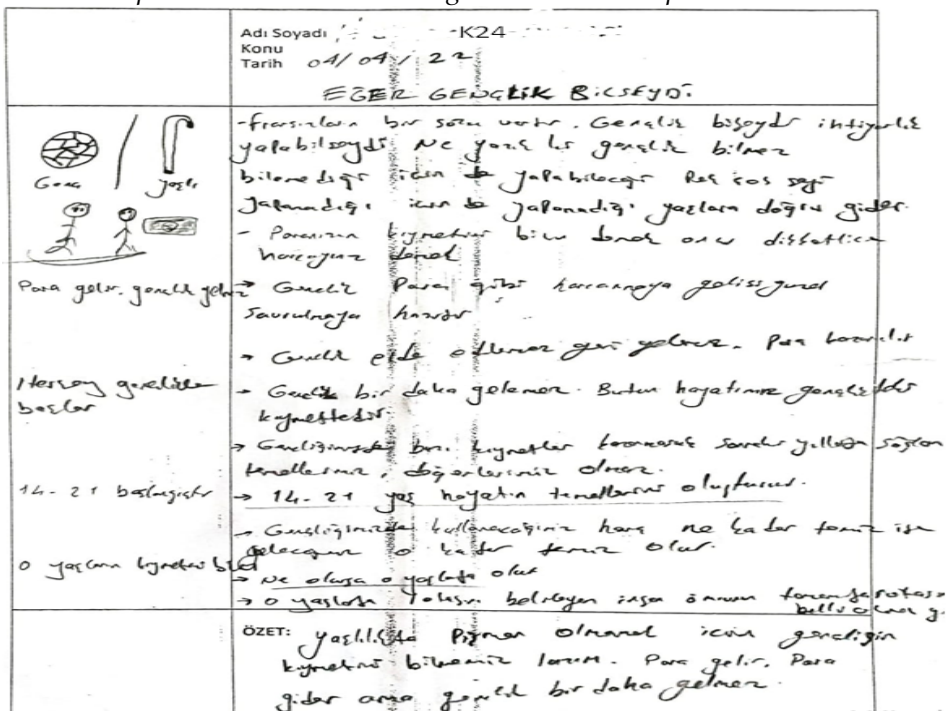 Adı Soyadı K24
Konu
Tarih 04/04/22
EĞER GENÇLİK BİLSEYDİ
Genç yaşlı
Para gelir. gençlik gelmez
Herşey gençlikte
başlar
14-21 başlangıçtır
O yaşların kıymetini
bir sözü vardır. Gençlik bilseydi ihtiyarlık
yapabilseydi Ne yazık ki gençlik bilmez
bilmediği için de yapabileceği
yapamadığı için de yapamadığı yaşlara doğru gider.
- Paranızın kıymetini bilin demek onu dikkatlice
harcayınız demek
→ Gençlik Para gibi harcanmaya
savrulmaya hazırdır
→ Gençlik elde edilemez geri gelmez. Para kazanılır
→ Gençlik bir daha gelemez. Bütün hayatımız
kıymettedir.
→ bazı kıymetler
temellerimiz, olmaz.
→ 14-21 yaş hayatın temellerini oluşturur.
→ Gençliğimizde kullanacağımız harç ne kadar temiz ise
geleceğimiz o kadar temiz olur.
→ Ne olursa o yaşlarda olur
→ o yaşlarda belirleyen insan
ÖZET: yaşlılıkta Pişman olmamak icin gençliğin
kıymetini bilmemiz lazım. Para gelir. Para
gider ama gençlik bir daha gelmez.